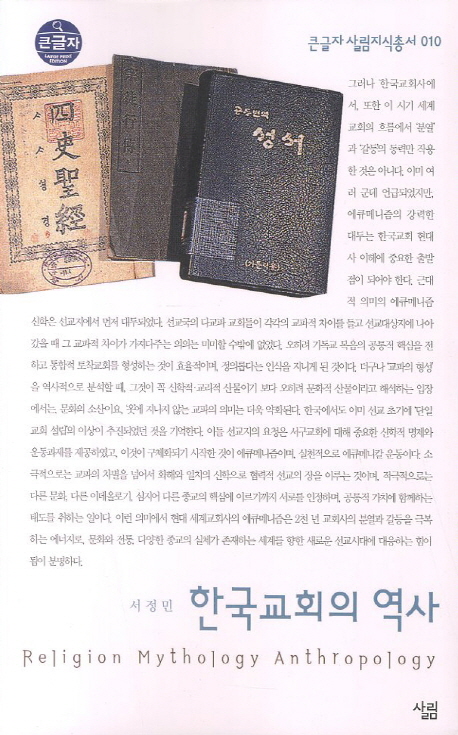 큰글자
LARGE PRINT
EDITION
큰글자 살림지식총서 010
四史聖經
ᄉᆞᄉᆞ셩경
공동번역
성서
(가톨릭용)
그러나 한국교회사에
서, 또한 이 시기 세계
교회의 흐름에서 '분열'
과 '갈등'의 동력만 작용
한 것은 아니다. 이미 여
러 군데 언급되었지만,
에큐메니즘의 강력한
대두는 한국교회 현대
사 이해에 중요한 출발
점이 되어야 한다. 근대
적 의미의 에큐메니즘
신학은 선교지에서 먼저 대두되었다. 선교국의 다교파 교회들이 각각의 교파적 차이를 들고 선교대상지에 나아
갔을 때 그 교파적 차이가 가져다주는 의의는 미미할 수밖에 없었다. 오히려 기독교 복음의 공통적 핵심을 전
하고 통합적 토착교회를 형성하는 것이 효율적이며, 정의롭다는 인식을 지니게 된 것이다. 더구나 '교파의 형성'
을 역사적으로 분석할 때, 그것이 꼭 신학적·교리적 산물이기 보다 오히려 문화적 산물이라고 해석하는 입장
에서는, 문화의 소산이요, '옷'에 지나지 않는 교파의 의미는 더욱 약화된다. 한국에서도 이미 선교 초기에 '단일
교회 설립'의 이상이 추진되었던 것을 기억한다. 이들 선교지의 요청은 서구교회에 대해 중요한 신학적 명제와
운동과제를 제공하였고, 이것이 구체화되기 시작한 것이 에큐메니즘이며, 실천적으로 에큐메니칼 운동이다. 소
극적으로는 교파의 차별을 넘어서 화해와 일치의 신학으로 협력적 선교의 장을 이루는 것이며, 적극적으로는
다른 문화, 다른 이데올로기, 심지어 다른 종교의 핵심에 이르기까지 서로를 인정하며, 공통적 가치에 함께하는
태도를 취하는 일이다. 이런 의미에서 현대 세계교회사의 에큐메니즘은 2천 년 교회사의 분열과 갈등을 극복
하는 에너지로, 문화와 전통, 다양한 종교의 실체가 존재하는 세계를 향한 새로운 선교시대에 대응하는 힘이
됨이 분명하다.
서정민 한국교회의 역사
Religion Mythology Anthropology
살림